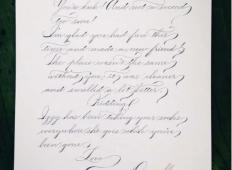 You're back! And not a second
too soon!
I'm glad you had fun this
time and made a new friend!
The place wasn't the same
without you; it was cleaner
and smelled a lot better.
Kidding!
Iggy has been taking your snake
everywhere she goes while you've
been gone.
Love